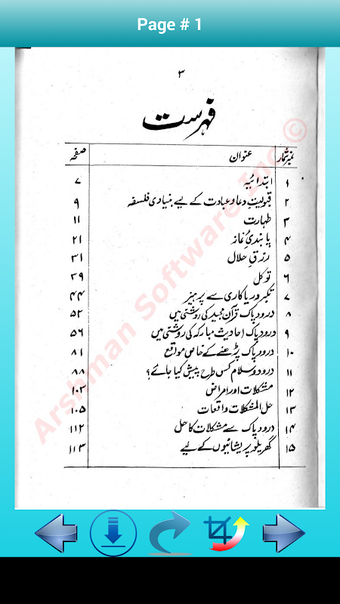 Page # 1
۳
فہرست
نمبر شمار عنوان صفحہ
۱ ابتدائیہ ۷
۲ قبولیت دعا و عبادت کے لیے بنیادی فلسفہ ۹
۳ طہارت ۱۱
۴ پابندیٔ نماز ۲۱
۵ رزق حلال ۳۱
۶ توکل ۳۹
۷ تکبر و ریاکاری سے پرہیز ۴۴
۸ درود پاک قرآن مجید کی روشنی میں ۵۲
۹ درود پاک احادیث مبارکہ کی روشنی میں ۵۶
۱۰ درود پاک پڑھنے کے خاص مواقع ۸۱
۱۱ درود و سلام کس طرح پیش کیا جائے؟ ۸۸
۱۲ مشکلات اور امراض ۱۰۳
۱۳ حل المشکلات واقعات ۱۰۵
۱۴ درود پاک سے مشکلات کا حل ۱۱۲
۱۵ گھریلو پریشانیوں کے لیے ۱۱۳
Arshman Software Inc ©